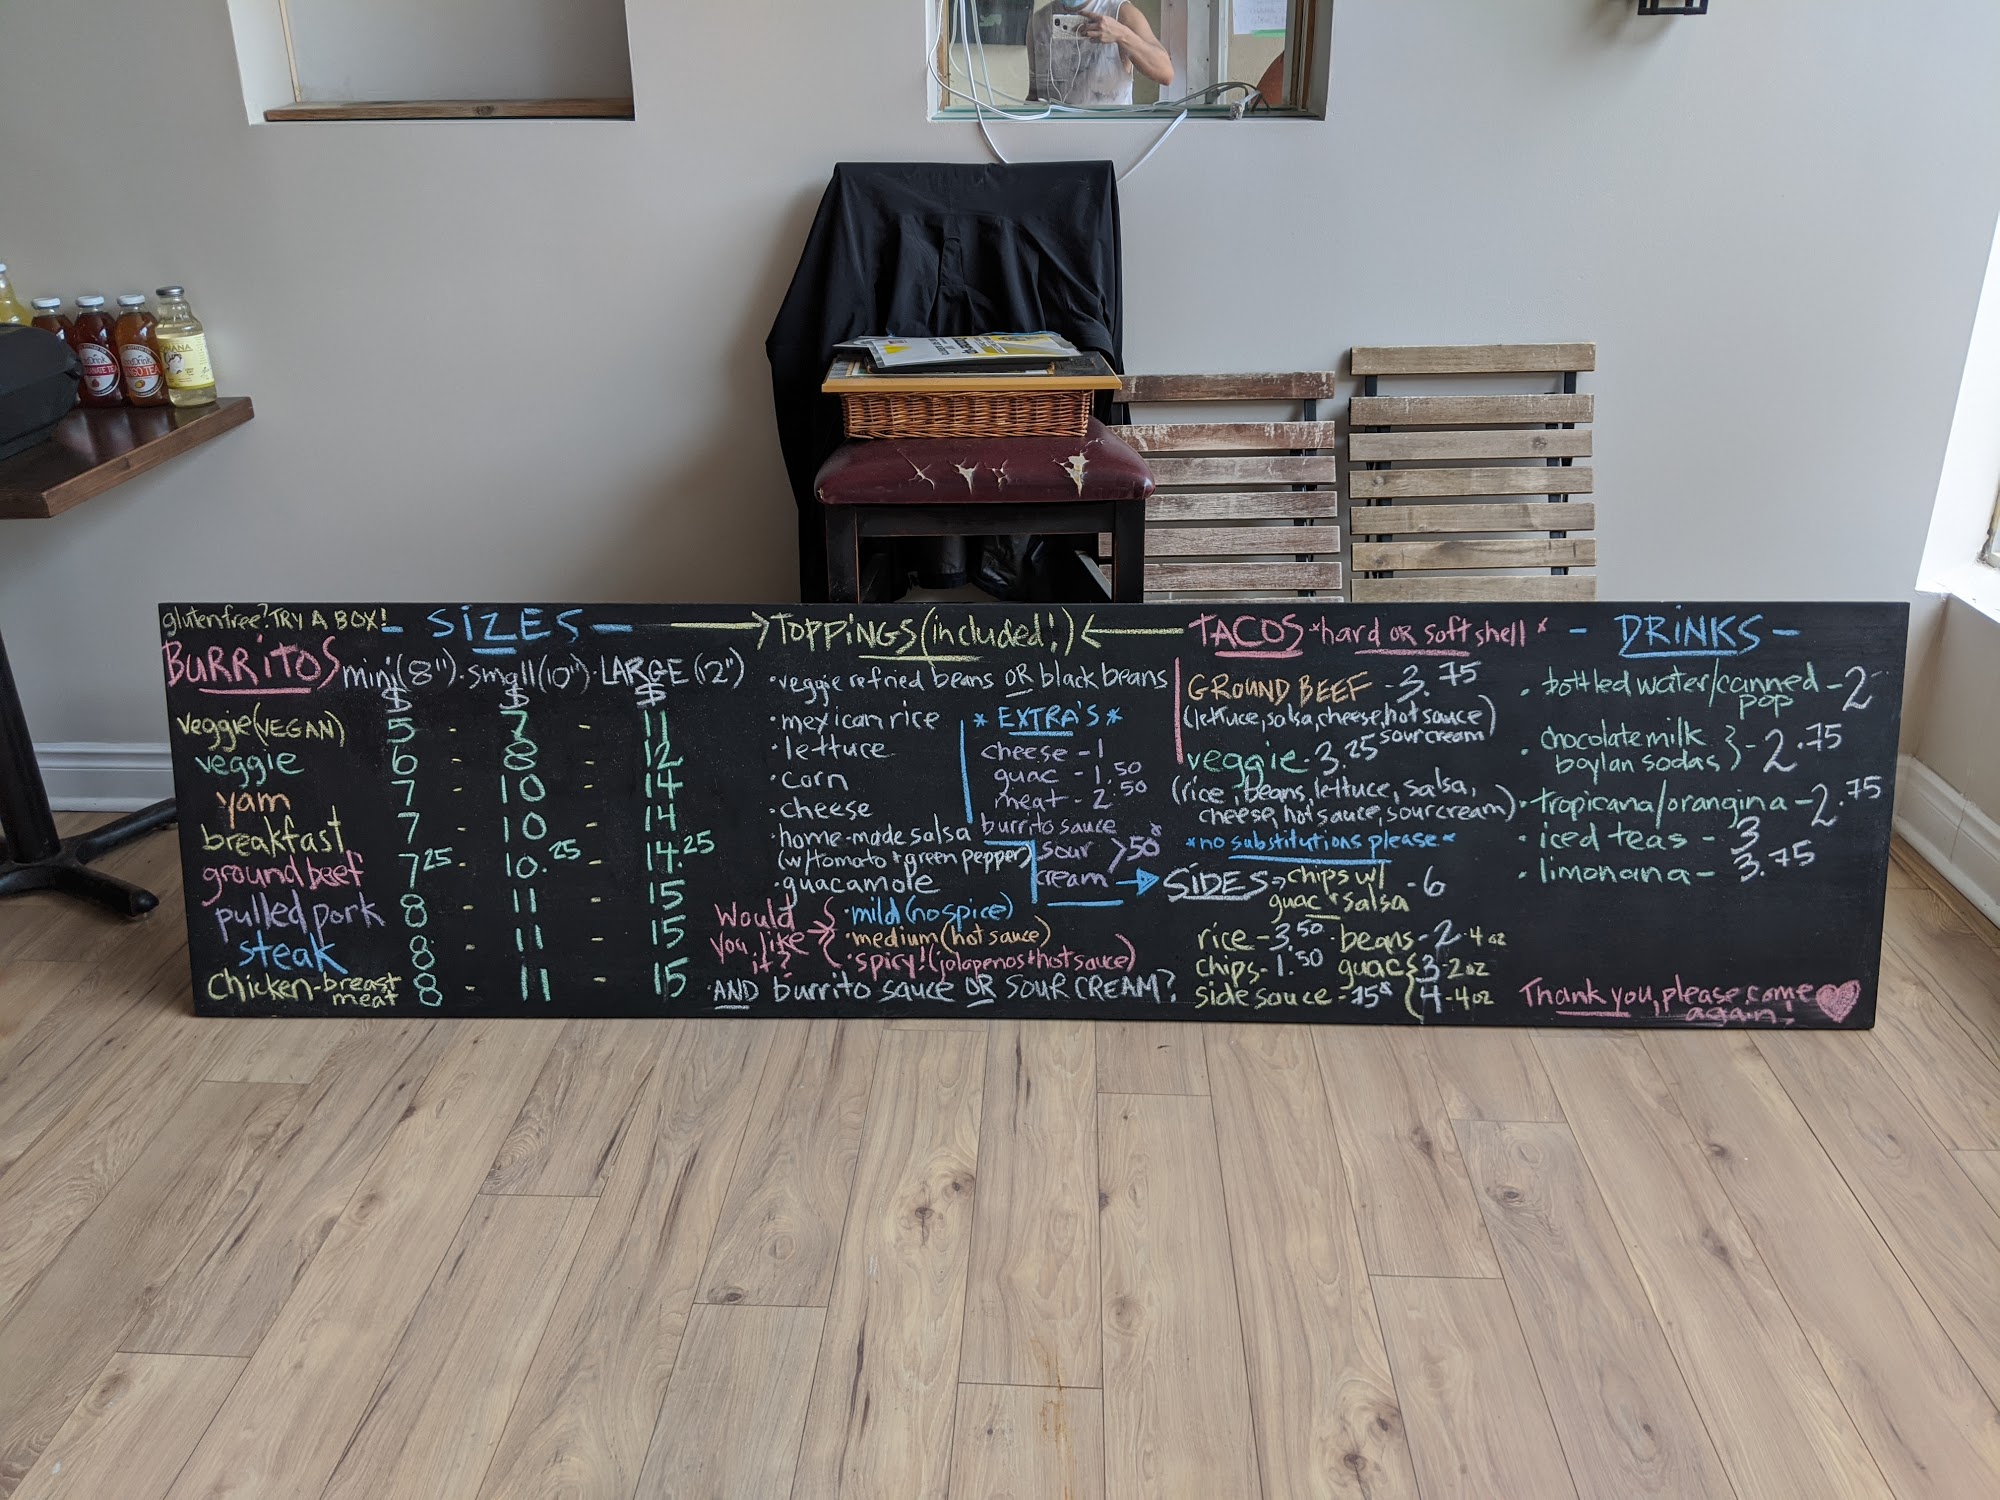 glutenfree? TRY A BOX!
BURRITOS
- SIZES -
mini(8") · small(10") · LARGE (12")
$ $ $
veggie(VEGAN) 5 - 7 - 11
veggie 6 - 8 - 12
yam 7 - 10 - 14
breakfast 7 - 10 - 14
ground beef 7.25 - 10.25 - 14.25
pulled pork 8 - 11 - 15
steak 8 - 11 - 15
Chicken-breast meat 8 - 11 - 15
TOPPINGS (included!)
· veggie refried beans OR black beans
· mexican rice
· lettuce
· corn
· cheese
· home-made salsa
(w/tomato + green pepper)
· guacamole
* EXTRA'S *
cheese - 1
guac - 1.50
meat - 2.50
burrito sauce
sour cream > 50¢
Would
you like
it?
· mild (no spice)
· medium (hot sauce)
· spicy! (jalapenos + hot sauce)
· AND burrito sauce OR SOUR CREAM?
TACOS *hard OR soft shell *
GROUND BEEF - 3.75
(lettuce, salsa, cheese, hot sauce)
sour cream
veggie - 3.25
(rice, beans, lettuce, salsa,
cheese, hot sauce, sour cream)
*no substitutions please*
SIDES → chips w/
guac + salsa - 6
rice - 3.50 · beans - 2 - 4oz
chips - 1.50 guac { 3 - 2oz
side sauce - 75¢ { 4 - 4oz
- DRINKS -
· bottled water/canned pop - 2
· chocolate milk
boylan sodas } - 2.75
· tropicana/orangina - 2.75
· iced teas - 3
· limonana - 3.75
Thank you, please come
again!